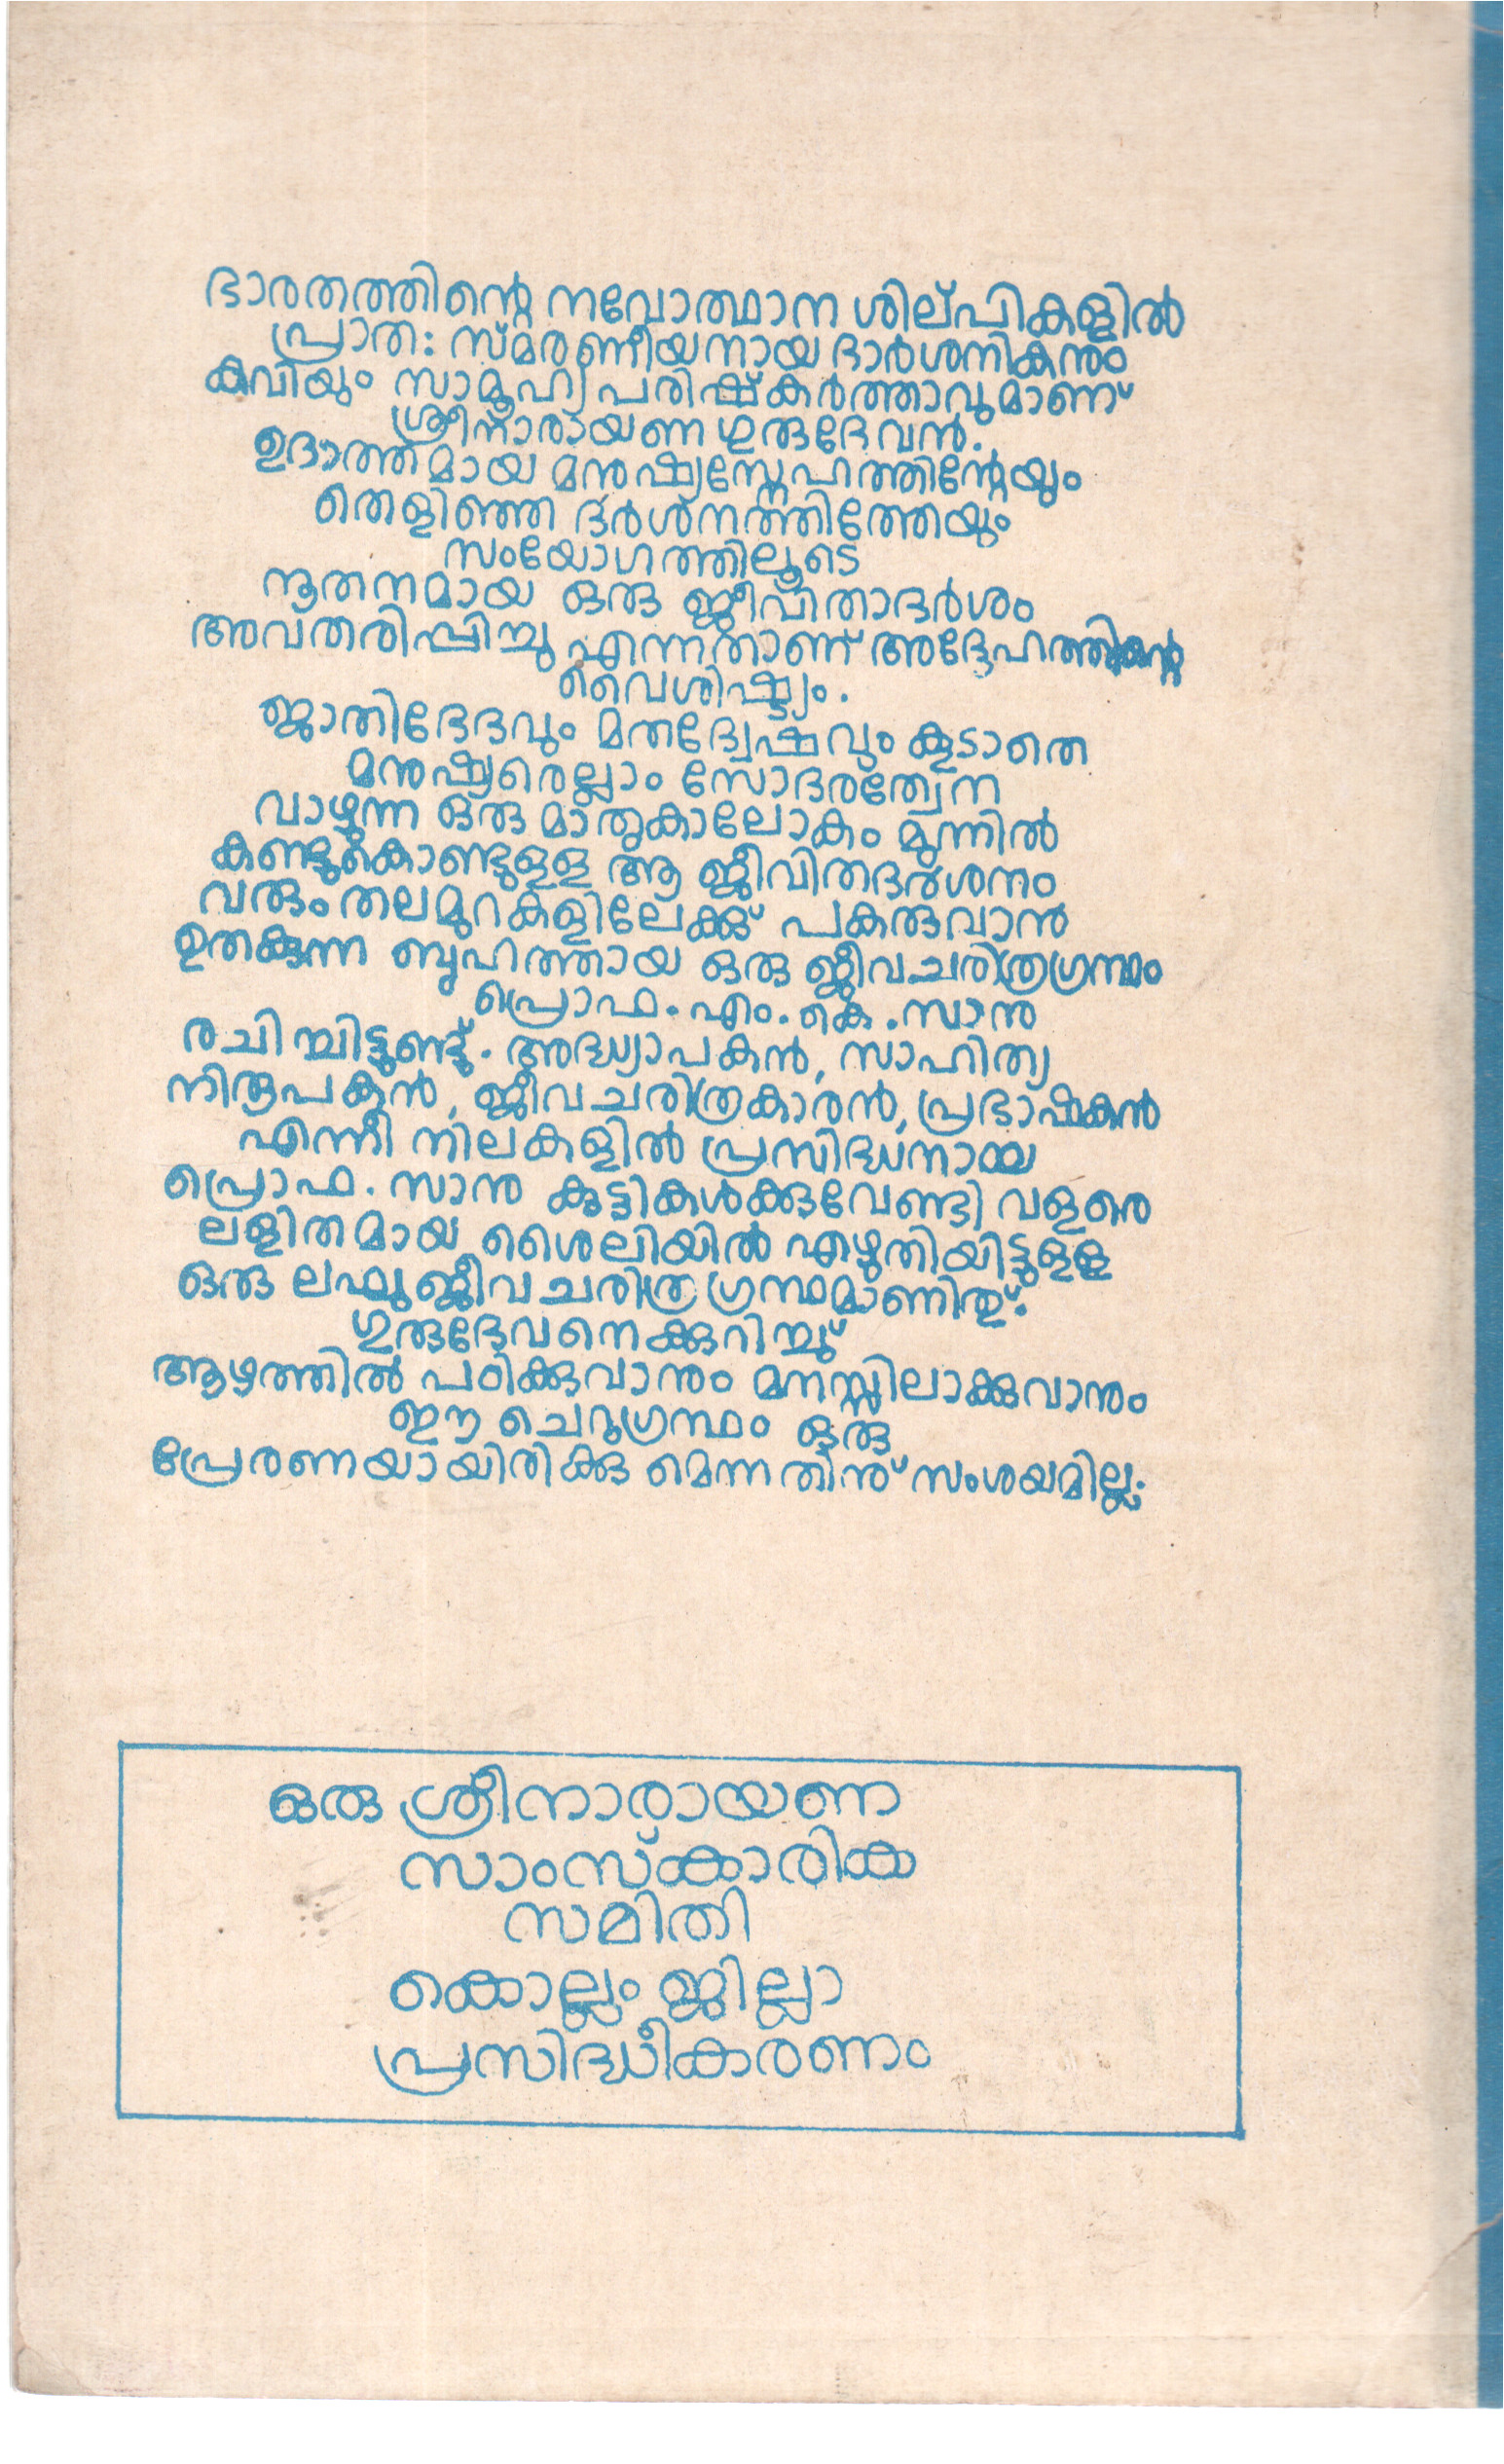 ഭാരതത്തിന്റെ നവോത്ഥാന ശില്പികളിൽ
പ്രാത: സ്മരണീയനായ ദാർശനികനും
കവിയും സാമൂഹ്യ പരിഷ്ക്കർത്താവുമാണ്
ശ്രീനാരായണ ഗുരുദേവൻ.
ഉദാത്തമായ മനുഷ്യസ്നേഹത്തിന്റേയും
തെളിഞ്ഞ ദർശനത്തിന്റേയും
സംയോഗത്തിലൂടെ
നൂതനമായ ഒരു ജീവിതാദർശം
അവതരിപ്പിച്ചു എന്നതാണ് അദ്ദേഹത്തിന്റെ
വൈശിഷ്ട്യം.
ജാതിഭേദവും മതദ്വേഷവും കൂടാതെ
മനുഷ്യരെല്ലാം സോദരത്വേന
വാഴുന്ന ഒരു മാതൃകാലോകം മുന്നിൽ
കണ്ടുകൊണ്ടുള്ള ആ ജീവിതദർശനം
വരുംതലമുറകളിലേക്കു് പകരുവാൻ
ഉതകുന്ന ബൃഹത്തായ ഒരു ജീവചരിത്രഗ്രന്ഥം
പ്രൊഫ. എം. കെ. സാനു
രചിച്ചിട്ടുണ്ടു്. അദ്ധ്യാപകൻ, സാഹിത്യ
നിരൂപകൻ, ജീവചരിത്രകാരൻ, പ്രഭാഷകൻ
എന്നീ നിലകളിൽ പ്രസിദ്ധനായ
പ്രൊഫ. സാനു കുട്ടികൾക്കുവേണ്ടി വളരെ
ലളിതമായ ശൈലിയിൽ എഴുതിയിട്ടുള്ള
ഒരു ലഘുജീവചരിത്ര ഗ്രന്ഥമാണിതു്.
ഗുരുദേവനെക്കുറിച്ചു്
ആഴത്തിൽ പഠിക്കുവാനും മനസ്സിലാക്കുവാനും
ഈ ചെറുഗ്രന്ഥം ഒരു
പ്രേരണയായിരിക്കുമെന്നതിനു് സംശയമില്ല.
ഒരു ശ്രീനാരായണ
സാംസ്ക്കാരിക
സമിതി
കൊല്ലം ജില്ലാ
പ്രസിദ്ധീകരണം